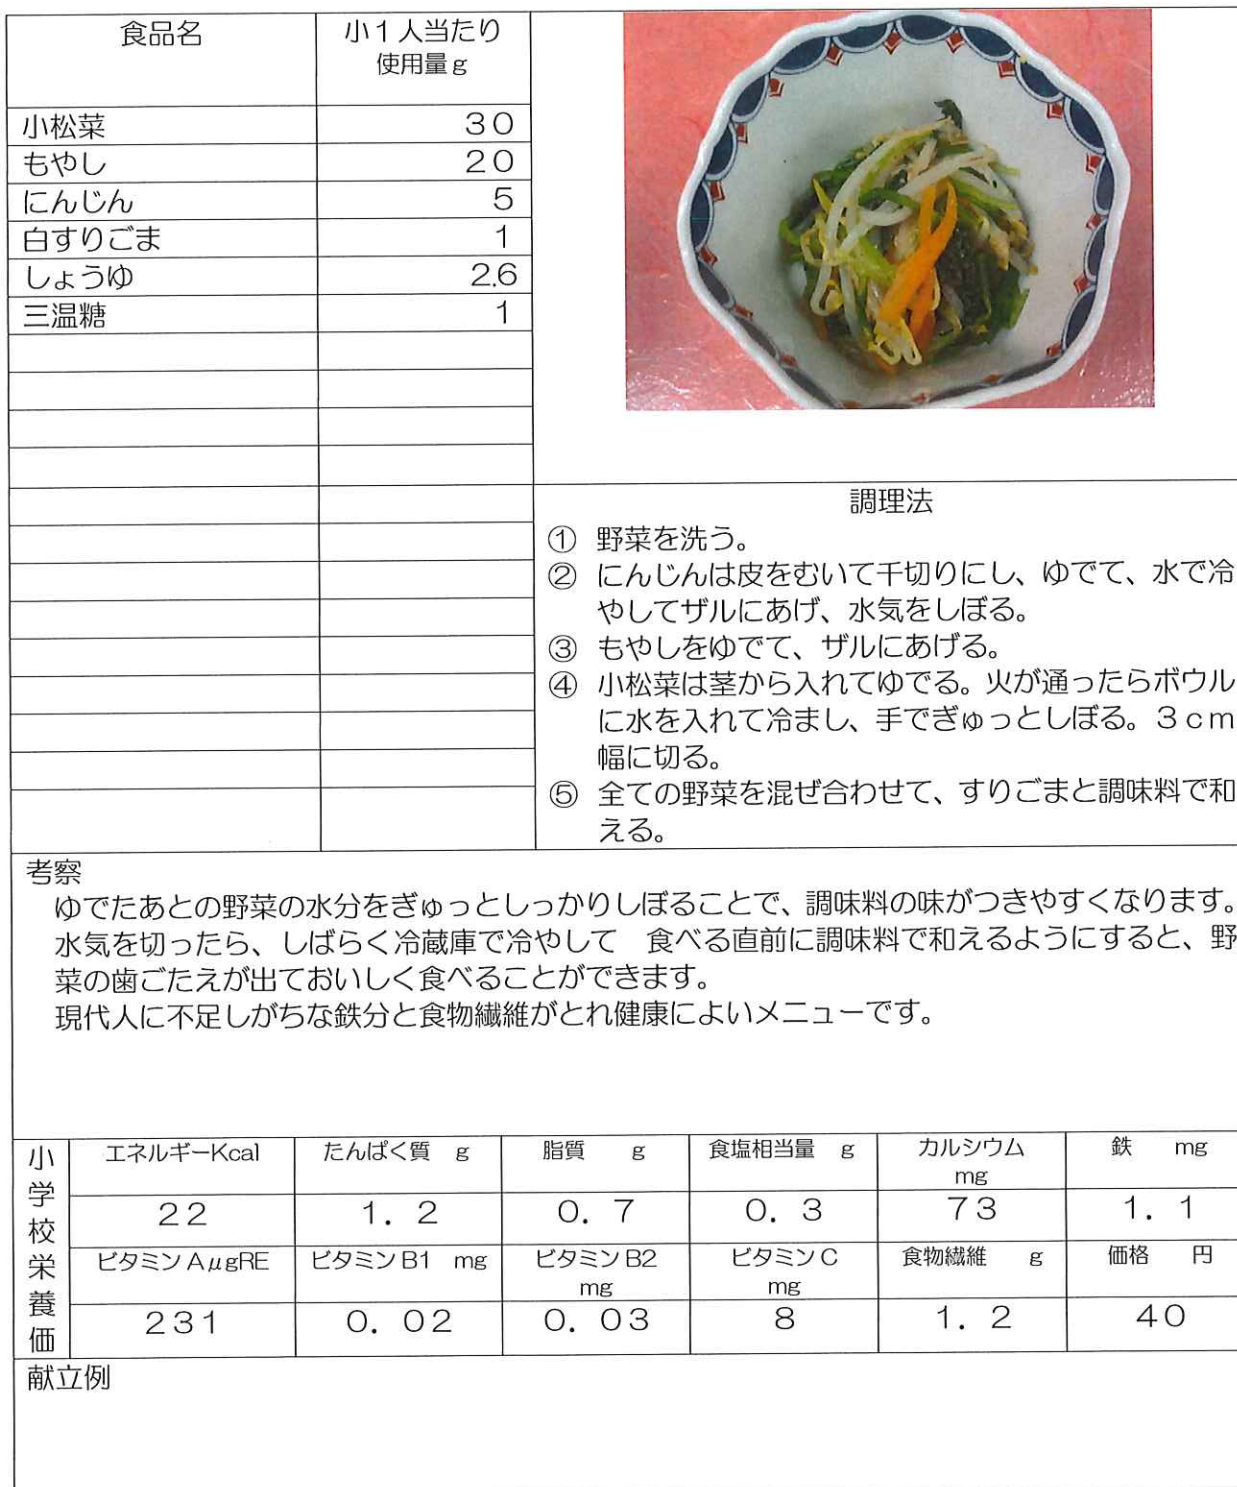 食品名 小１人当たり
使用量ｇ
小松菜 ３０
もやし ２０
にんじん ５
白すりごま １
しょうゆ 2.6
三温糖 １
調理法
① 野菜を洗う。
② にんじんは皮をむいて千切りにし、ゆでて、水で冷
やしてザルにあげ、水気をしぼる。
③ もやしをゆでて、ザルにあげる。
④ 小松菜は茎から入れてゆでる。火が通ったらボウル
に水を入れて冷まし、手でぎゅっとしぼる。３ｃｍ
幅に切る。
⑤ 全ての野菜を混ぜ合わせて、すりごまと調味料で和
える。
考察
ゆでたあとの野菜の水分をぎゅっとしっかりしぼることで、調味料の味がつきやすくなります。
水気を切ったら、しばらく冷蔵庫で冷やして　食べる直前に調味料で和えるようにすると、野
菜の歯ごたえが出ておいしく食べることができます。
現代人に不足しがちな鉄分と食物繊維がとれ健康によいメニューです。
小学校栄養価
エネルギーKcal たんぱく質 ｇ 脂質 ｇ 食塩相当量 ｇ カルシウム mg 鉄 mg
２２ １．２ ０．７ ０．３ ７３ １．１
ビタミンAμgRE ビタミンB1 mg ビタミンB2 mg ビタミンC mg 食物繊維 ｇ 価格 円
２３１ ０．０２ ０．０３ ８ １．２ ４０
献立例